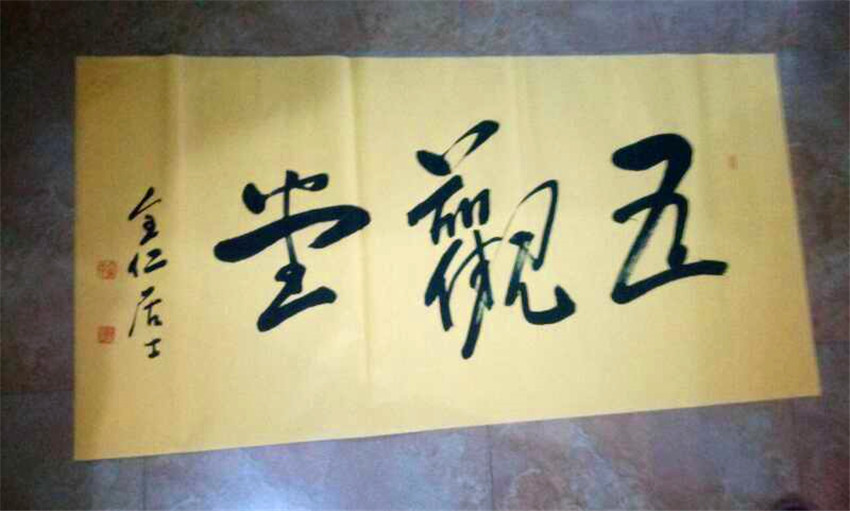 五觀堂
全仁居士